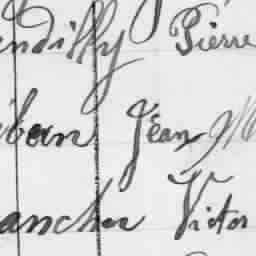 endilly Pierre
iban Jean M
anchar Victor